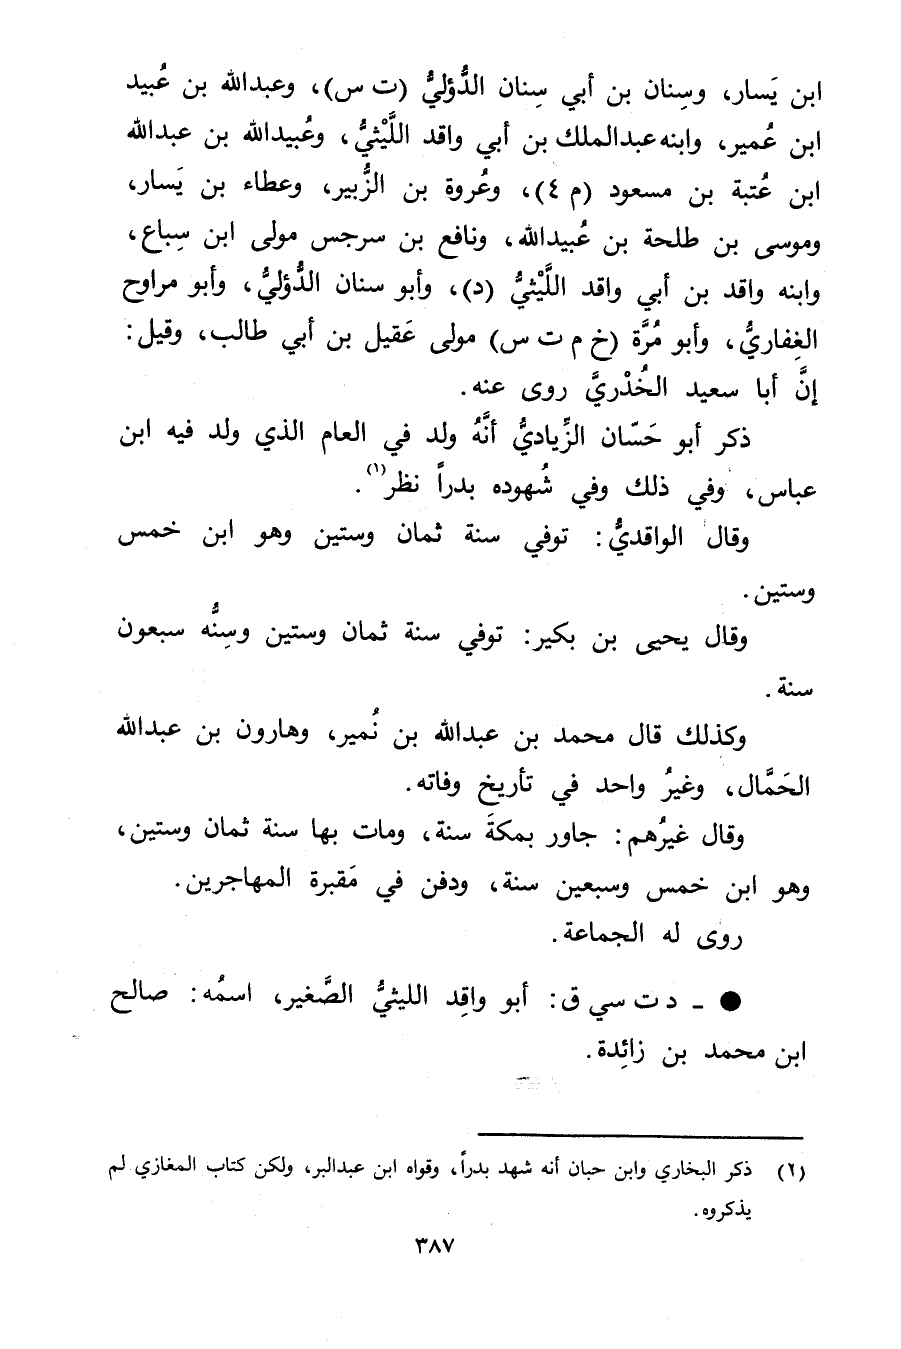 ابن يَسار، وسِنان بن أبي سِنان الدُّؤليُّ (ت س)، وعبدالله بن عُبيد
ابن عُمير، وابنه عبدالملك بن أبي واقد اللَّيْثيُّ، وعُبيدالله بن عبدالله
ابن عُتبة بن مسعود (م ٤)، وعُروة بن الزُّبير، وعطاء بن يَسار،
وموسى بن طلحة بن عُبيدالله، ونافع بن سرجس مولى ابن سِباع،
وابنه واقد بن أبي واقد اللَّيْثيُّ (د)، وأبو سنان الدُّؤليُّ، وأبو مراوح
الغِفاريُّ، وأبو مُرَّة (خ م ت س) مولى عَقيل بن أبي طالب، وقيل:
إنَّ أبا سعيد الخُدْريَّ روى عنه.
ذكر أبو حَسّان الزِّياديُّ أنَّهُ ولد في العام الذي ولد فيه ابن
عباس، وفي ذلك وفي شُهوده بدراً نظر(١).
وقال الواقديُّ: توفي سنة ثمان وستين وهو ابن خمس
وستين.
وقال يحيى بن بكير: توفي سنة ثمان وستين وسِنُّه سبعون
سنة.
وكذلك قال محمد بن عبدالله بن نُمير، وهارون بن عبدالله
الحَمَّال، وغيرُ واحد في تأريخ وفاته.
وقال غيرُهم: جاور بمكةَ سنة، ومات بها سنة ثمان وستين،
وهو ابن خمس وسبعين سنة، ودفن في مَقبرة المهاجرين.
روى له الجماعة.
● ـ د ت سي ق: أبو واقِد الليثيُّ الصَّغير، اسمُه: صالح
ابن محمد بن زائِدة.
(١) ذكر البخاري وابن حبان أنه شهد بدراً، وقواه ابن عبدالبر، ولكن كتاب المغازي لم
يذكروه.
٣٨٧